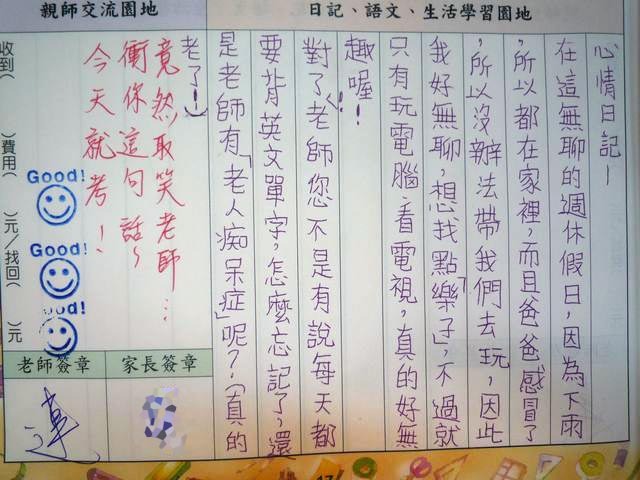 日記、語文、生活學習園地
心情日記—
在這無聊的週休假日，因為下雨
，所以都在家裡，而且爸爸感冒了
，所以沒辦法帶我們去玩，因此
我好無聊，想找點「樂子」，不過就
只有玩電腦、看電視，真的好無
趣喔！
對了！老師您不是有說每天都
要背英文單字，怎麼忘記了，還
是老師有「老人痴呆症」呢？（真的
老了！）
親師交流園地
竟然取笑老師…
衝你這句話~
今天就考！
Good!
Good!
Good!
收到（　）費用（　）元/找回（　）元
家長簽章
老師簽章